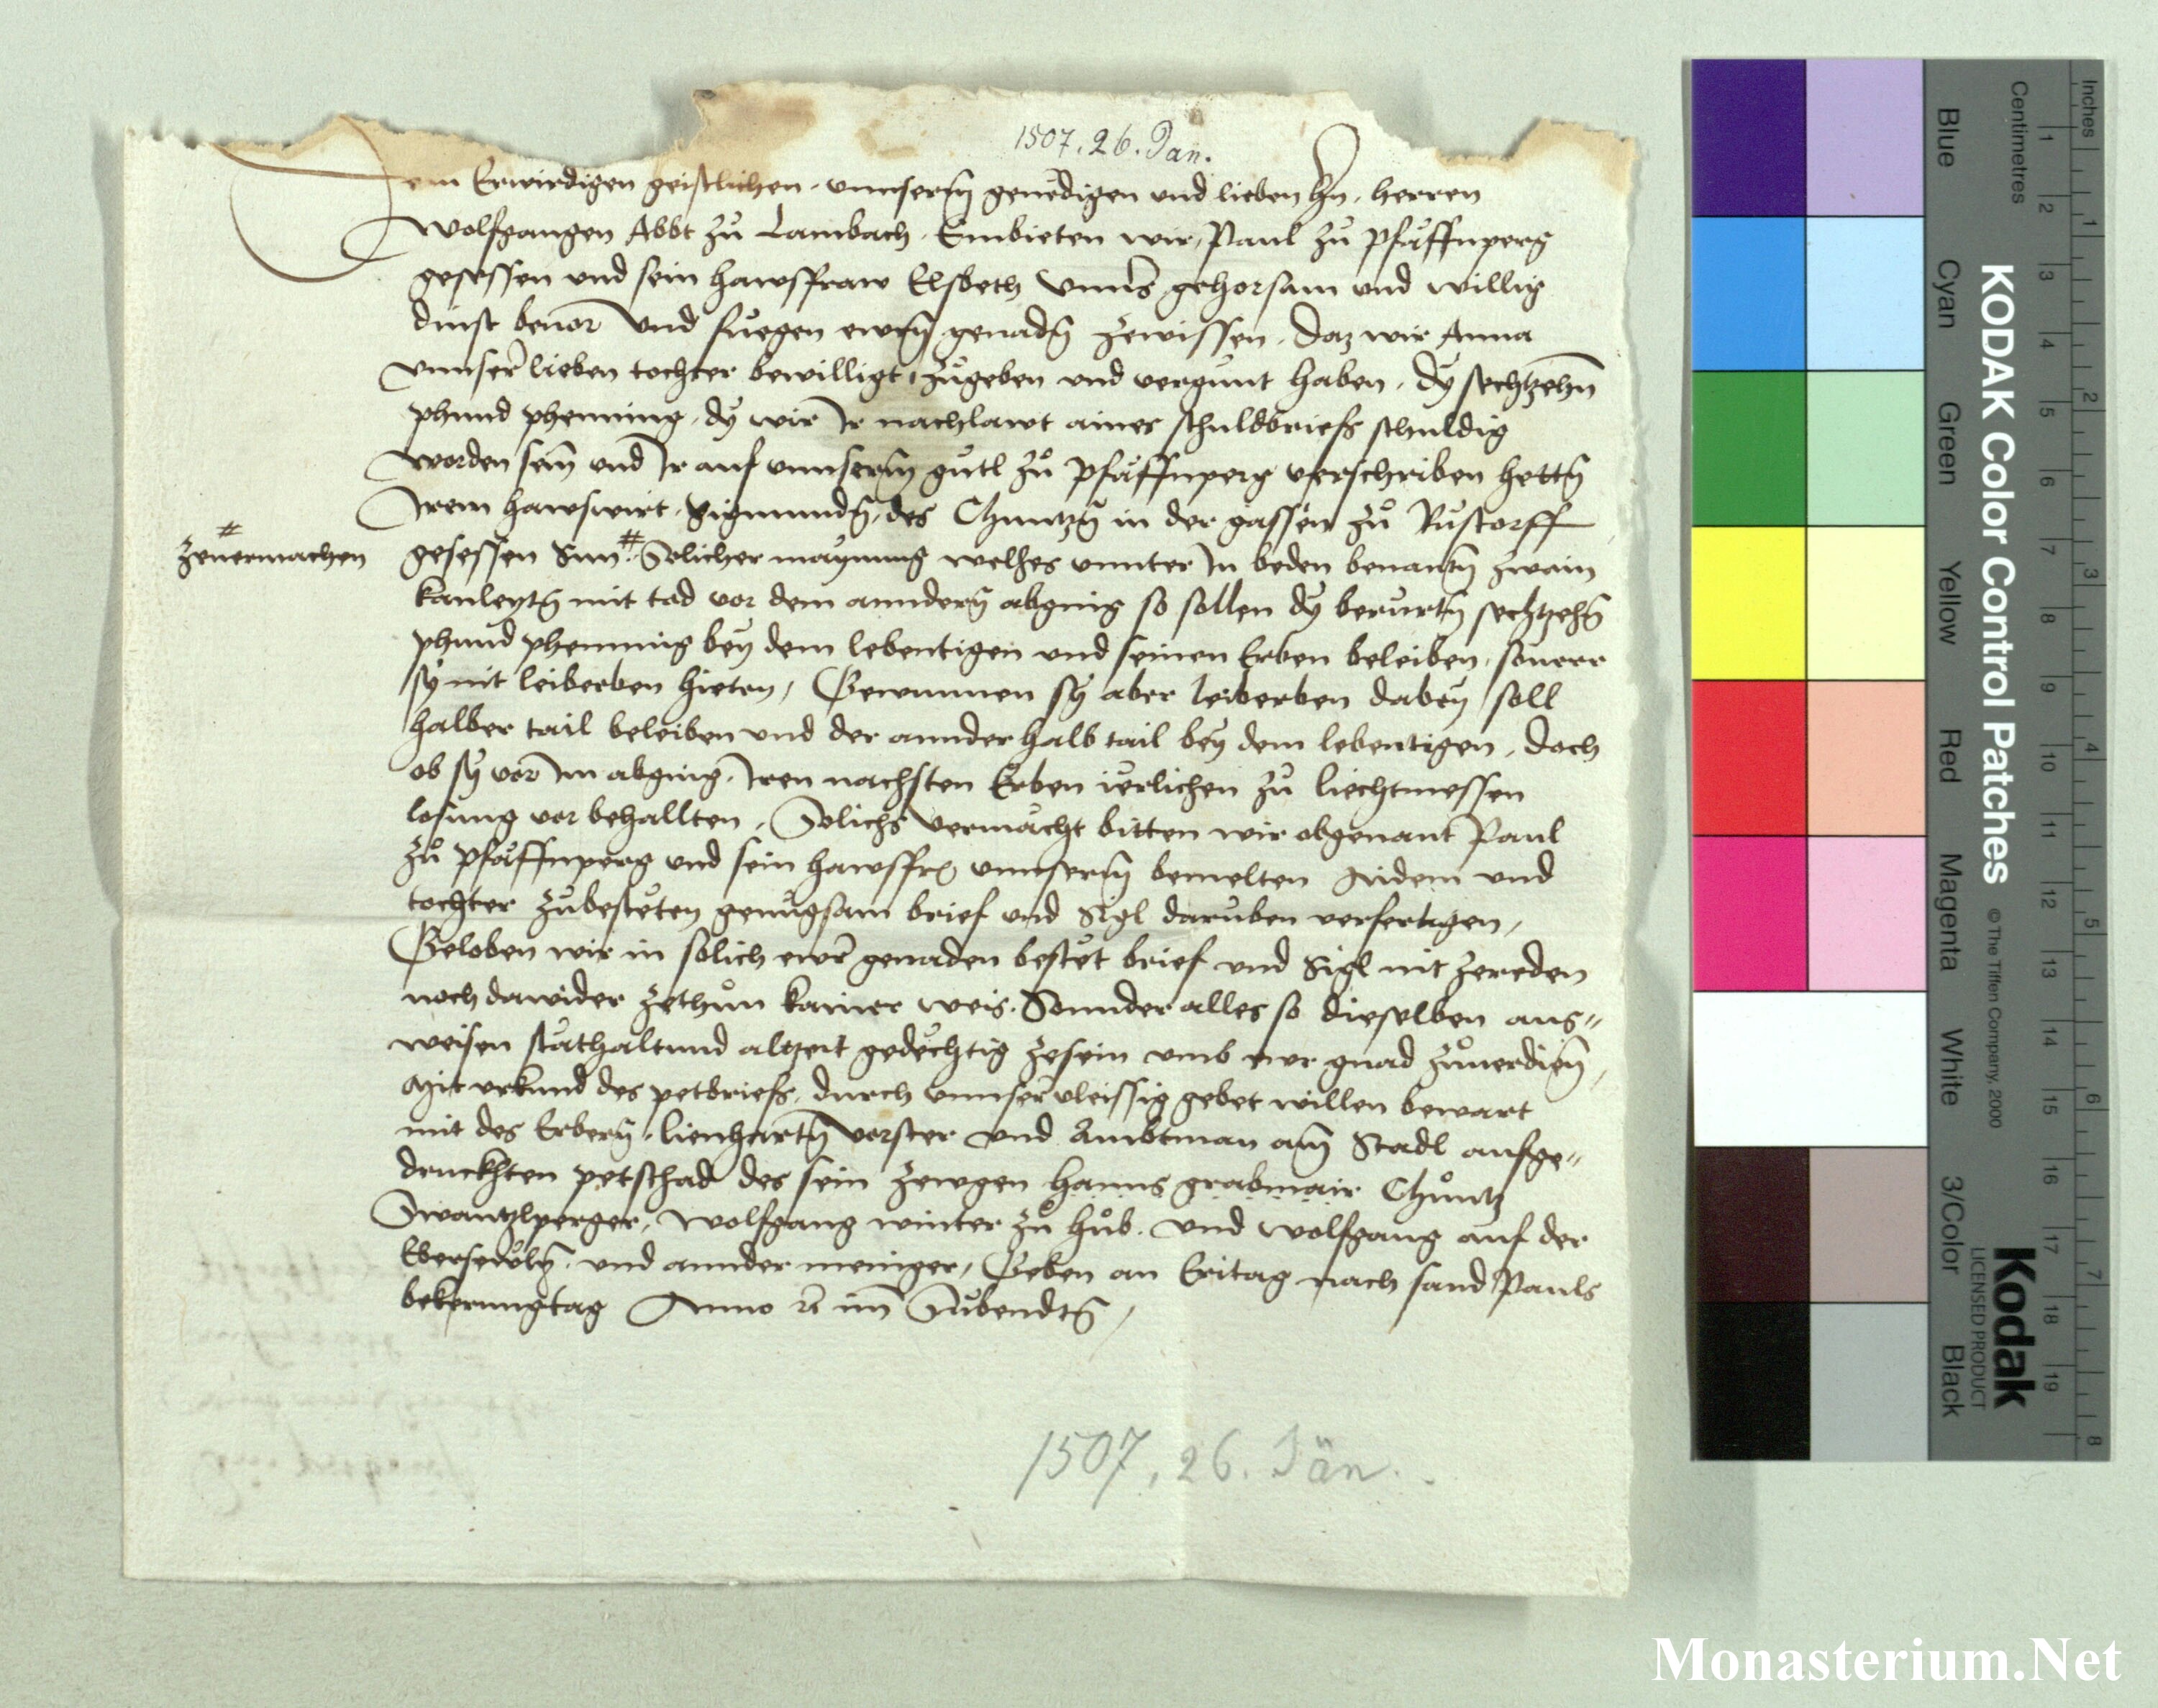 1507. 26. Jan.
Dem Erwirdigen geistlichen unnserm genedigen und lieben hn. herren
Wolfgangen Abbt zů Lambach. Embieten wir, Paul zů Pfäffnperg
gesessen und sein hawsfraw Elsbeth Unns gehorsam und willig
dinst beuor Und fuegen ewrn genadn zewissen. Daz wir Anna
unnser lieben tochter bewilligt, zůgeben und vergunt haben, dy sechtzehn
phund phenning, dy wir Ir nachlawt aines schuldbriefs schuldig
worden sein und Ir auf unnserm gutl zů Pfäffnperg verschriben hettn
Irem hawswirt, Sigmundn, des Chuntzn in der gassen zů Rustorff
# zeuermachen
gesessen Sun # Solicher maynung welhes unnter In beden benantn zwain
kanleytn mit tod vor dem anndern abging so sollen dy berurtn sechtzehn
phund phenning bey dem lebentigen und seinen Erben beleiben, souerr
sy nit leiberben hieten, Gewunnen sy aber leiberben dabey soll
halber tail beleiben und der annder halb tail bey dem lebentigen, doch
ob sy vor Im abging, Iren nachsten Erben ierlichen zů liechtmessen
losung vor behallten, Solichs vermächt bitten wir obgenant Paul
zů Pfäffnperg und sein hawsfr unnserm bemelten Aidem und
tochter zůbesteten genůgsam brief und Sigl daruben verfertigen,
Geloben wir in solich ewr genaden bestet brief und Sigl nit zereden
noch dawider zethůn kainer weis. Sonnder alles so dieselben aus=
weisen stäthaltund altzeit gedechtig zesein umb ewr gnad zůuerdien,
Mit urkund des petbriefs, durch unnser vleissig gebet willen bewart
mit des Erbern, lienhartn Vorster und Ambtman am Stadl aufge=
druckhten petschad des sein zewgen Hanns grabmair Chůntz
Swantzlperger, Wolfgang winter zů Hůb. und Wolfgang auf der
und annder meniger, Geben an Eritag nach sand Pauls
bekerungtag Anno im Subendtn,
1507, 26. Jän.
KODAK Color Control Patches
© The Tiffen Company, 2000
Kodak
LICENSED PRODUCT
Inches 1 2 3 4 5 6 7 8
Centimetres 1 2 3 4 5 6 7 8 9 10 11 12 13 14 15 16 17 18 19
Blue Cyan Green Yellow Red Magenta White 3/Color Black
Monasterium.Net